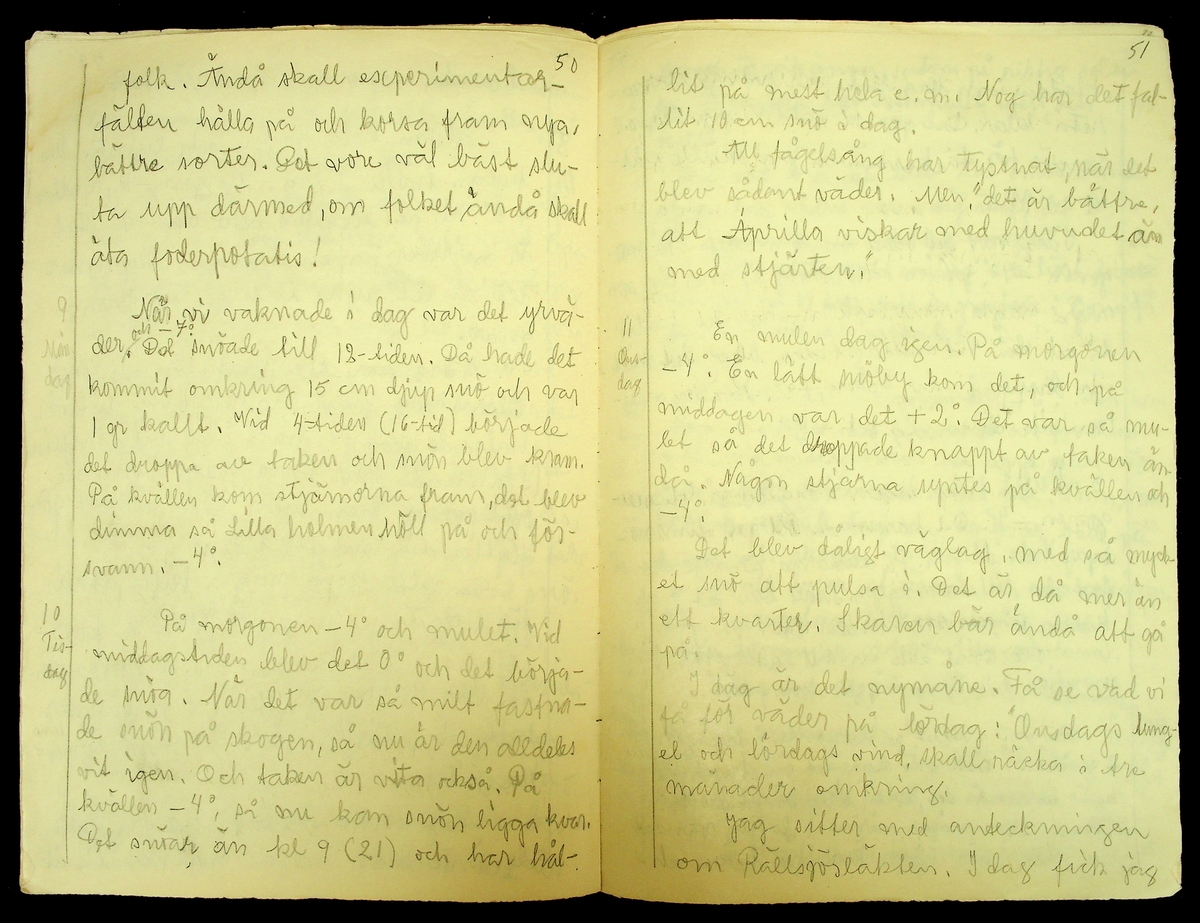 50
folk. Ändå skall experimentar-
fälten hålla på och korsa fram nya,
bättre sorter. Det vore väl bäst slu-
ta upp därmed, om folket ändå skall
äta foderpotatis!
9
Mån-
dag
När vi vaknade i dag var det yrvä-
och -7°
der. Det snöade till 12-tiden. Då hade det
kommit omkring 15 cm djup snö och var
1 gr kallt. Vid 4-tiden (16-tid) började
det droppa av taken och snön blev kram.
På kvällen kom stjärnorna fram, det blev
dimma så Lilla holmen höll på och för-
svann. -4°.
10
Tis-
dag
På morgonen -4° och mulet. Vid
middagstiden blev det 0° och det börja-
de snöa. När det var så milt fastna-
de snön på skogen, så nu är den alldeles
vit igen. Och taken är vita också. På
kvällen -4°, så nu kan snön ligga kvar.
Det snöar än kl 9 (21) och har hål-
51
lit på mest hela e.m. Nog har det fal-
lit 10 cm snö i dag.
All fågelsång har tystnat, när det
blev sådant väder. Men, "det är bättre,
att Áprilla viskar med huvudet än
med stjärten."
11
Ons-
dag
En mulen dag igen. På morgonen
-4°. En lätt snöby kom det, och på
middagen var det +2°. Det var så mu-
let så det droppade knappt av taken än-
då. Någon stjärna syntes på kvällen och
-4°.
Det blev dåligt väglag, med så myck-
et snö att pulsa i. Det är då mer än
ett kvarter. Skaren bär ändå att gå
på.
I dag är det nymåne. Få se vad vi
få för väder på lördag: "Onsdags lung-
el och lördags vind, skall räcka i tre
månader omkring.
Jag sitter med anteckningen
om Rällsjösläkten. I dag fick jag